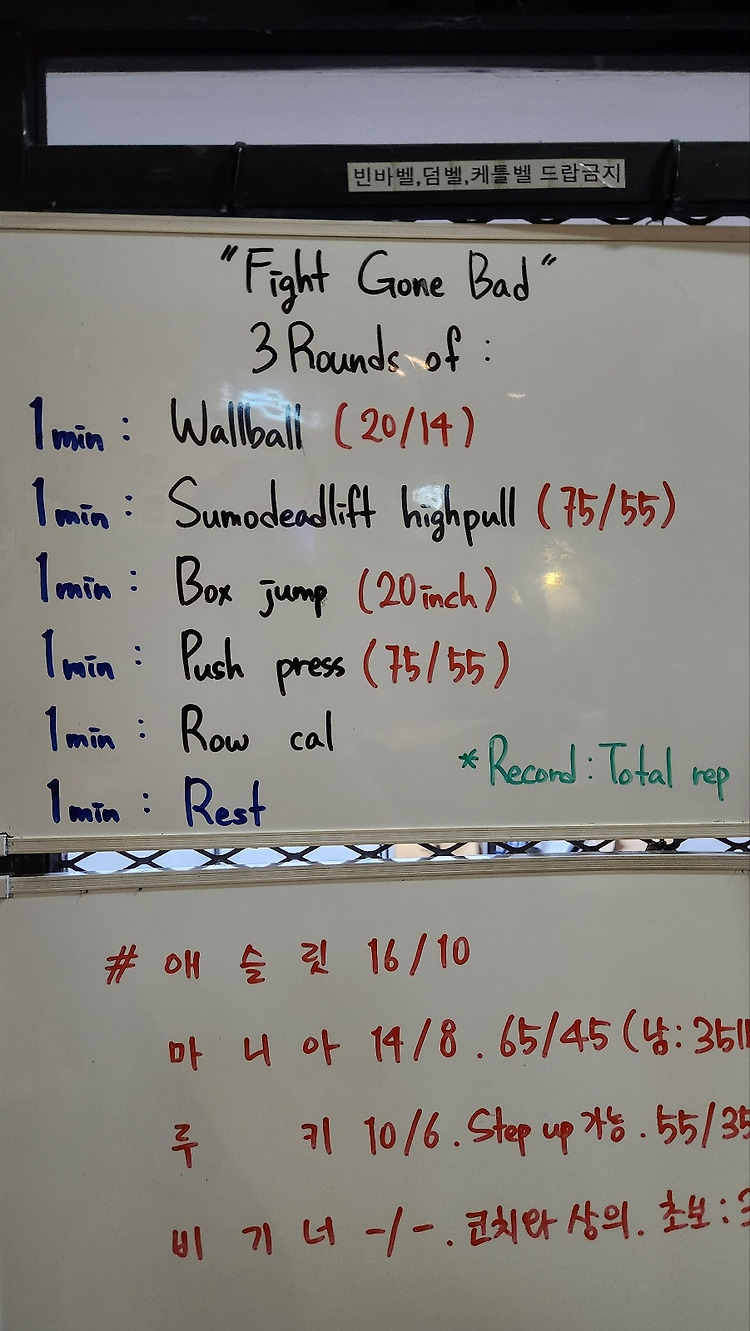 빈바벨,덤벨,케틀벨 드랍금지
"Fight Gone Bad"
3 Rounds of :
1min : Wallball (20/14)
1min : Sumodeadlift highpull (75/55)
1min : Box jump (20inch)
1min : Push press (75/55)
1min : Row cal
*Record : Total rep
1min : Rest
# 애슬릿 16/10
마니아 14/8 . 65/45 (남:35
루키 10/6 . Step up 가능 . 55/35
비기너 -/- . 코치와 상의 . 초보 : 3